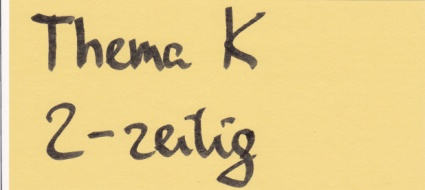 Thema K
2-zeilig